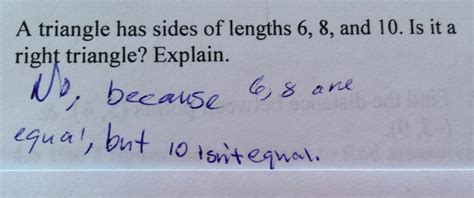 A triangle has sides of lengths 6, 8, and 10. Is it a
right triangle? Explain.
No, because 6, 8 are
equal, but 10 isn't equal.